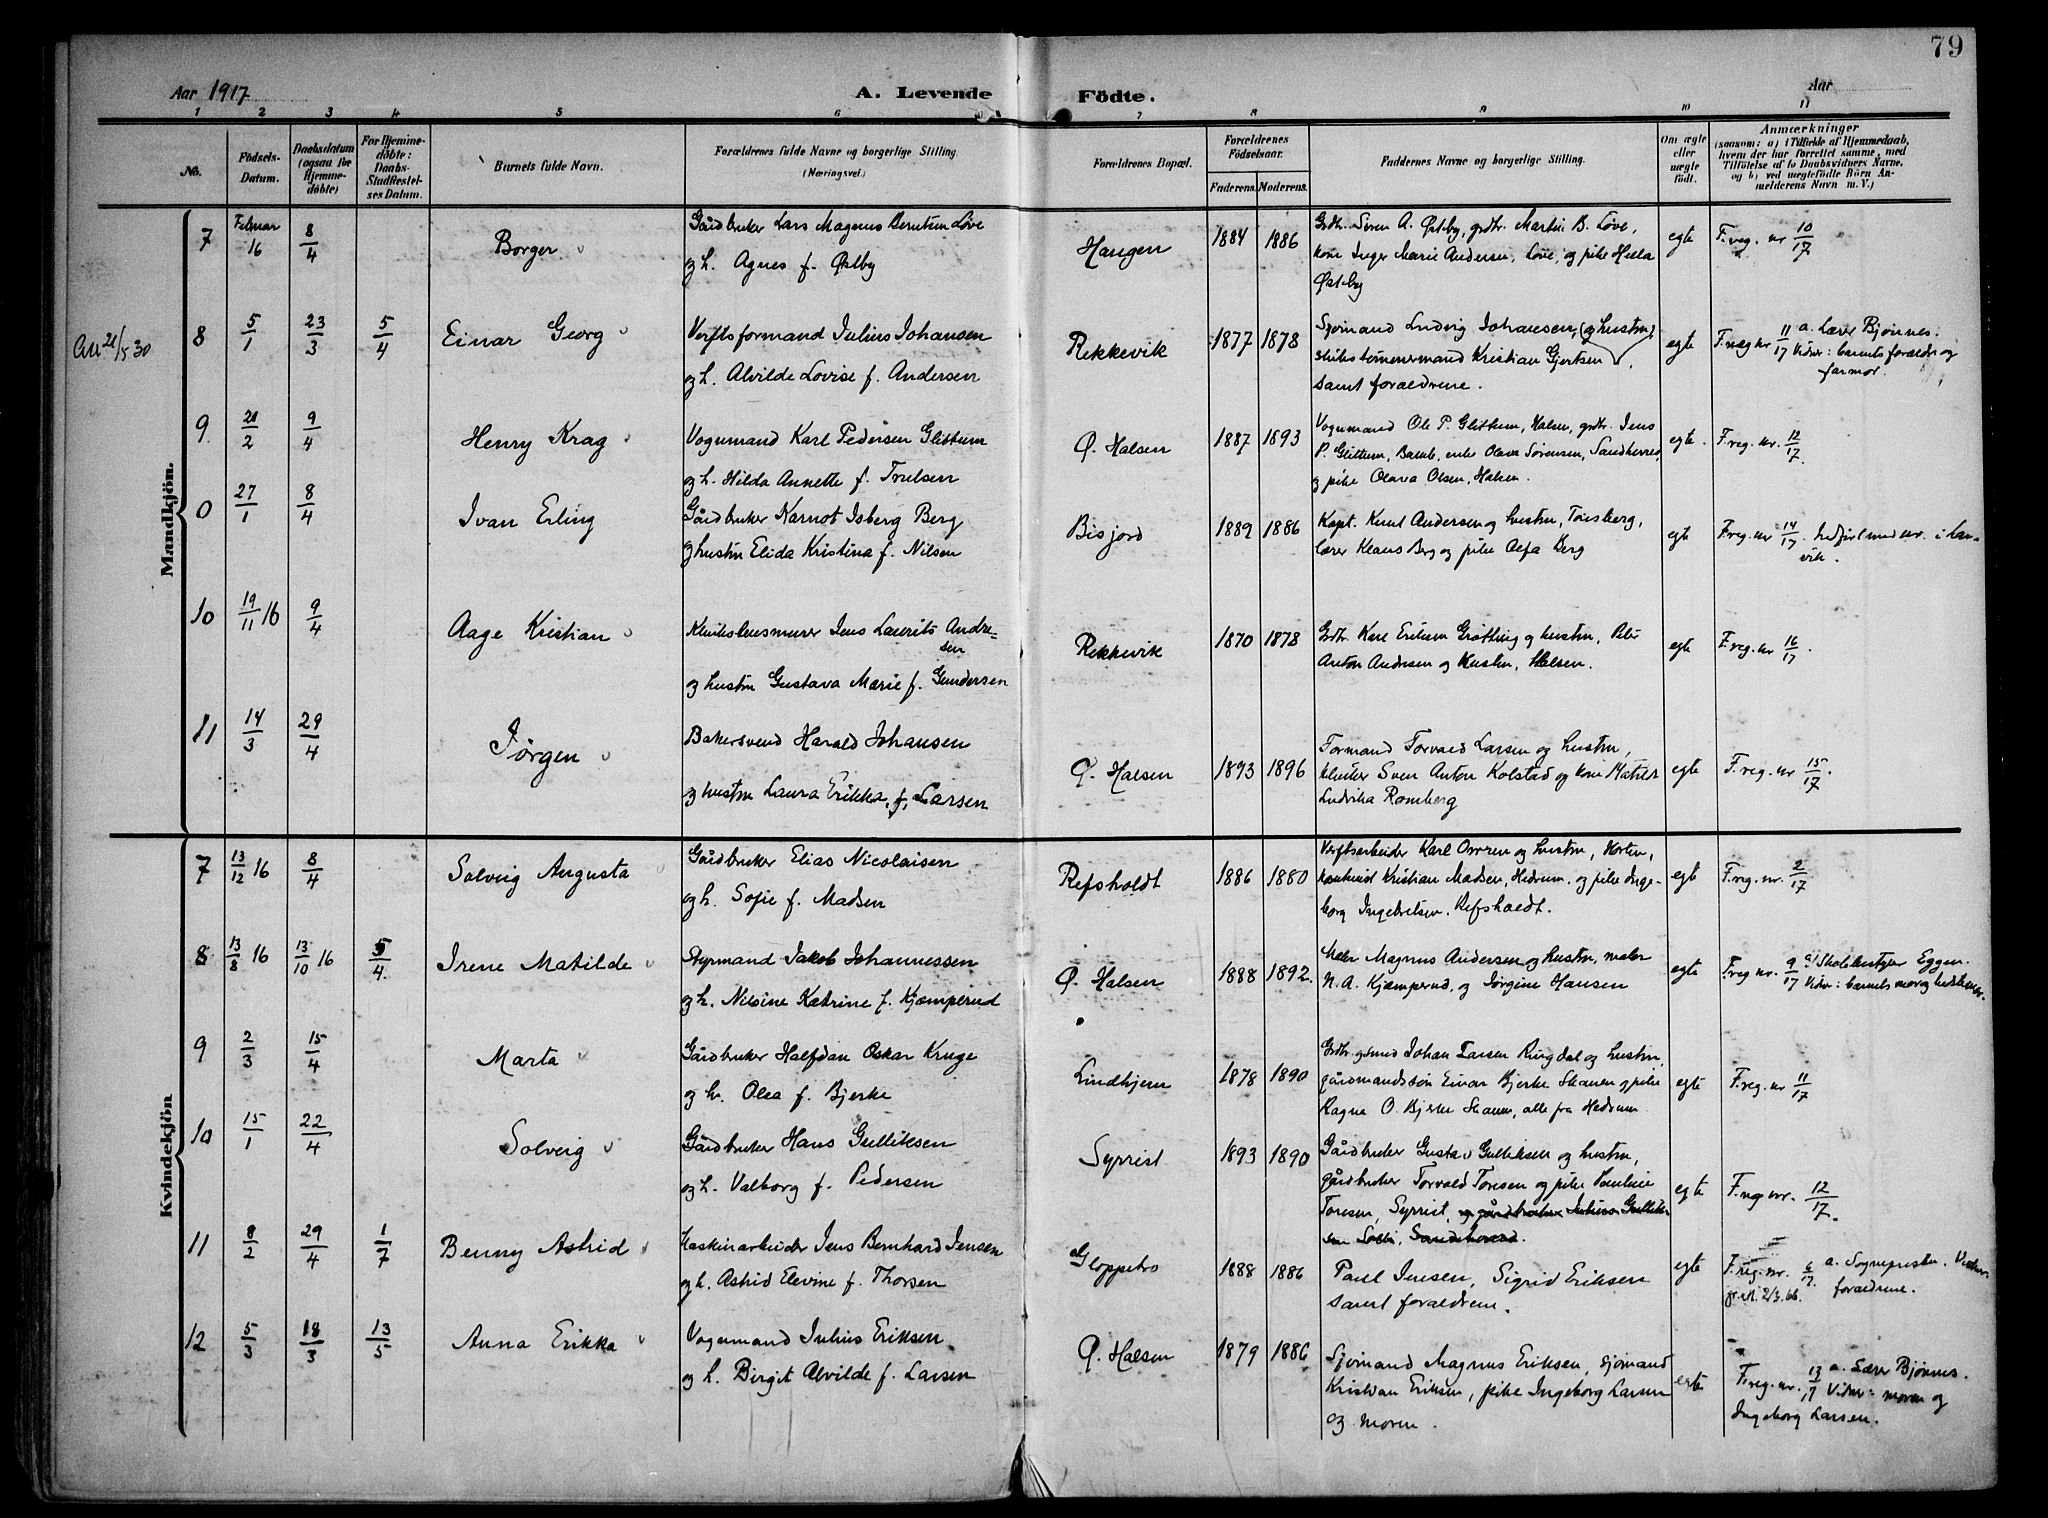 79
Aar 1917
A. Levende Födte.
Aar
1 2 3 4 5 6 7 8 9 10 11
No.
Födsels-Datum.
Daabsdatum (ogsaa for Hjemmedöbte)
For Hjemmedöbte: Daabs-Stadfestelses Datum.
Barnets fulde Navn.
Forældrenes fulde Navne og borgerlige Stilling. (Næringsvei.)
Forældrenes Bopæl.
Forældrenes Födselsaar.
Faderens. Moderens.
Faddernes Navne og borgerlige Stilling.
Om ægte eller uægte födt.
Anmærkninger
(saasom: a) i Tilfælde af Hjemmedaab, hvem der har forrettet samme, med Tilföielse af to Daabsvidners Navne, og b) ved uægtefödte Börn Anmelderens Navn m. V.)
Mandkjön.
7 Februar 16 8/4 Borger
Gårdbruker Lars Magnus Berntsen Løve
og h. Agnes f. Østby
Haugen 1884 1886
Grdbr. Sören A. Østby, grdbr. Martin B. Löve,
kone Inger Marie Andersen, Löve, og pike Helle
Østby
egte F. reg. nr 10/17
Att 21/5 30
8 5/1 23/3 5/4 Einar Georg
Verftsformand Julius Johansen
og h. Alvilde Lovise f. Andersen
Rekkevik 1877 1878
Sjømand Ludvig Johansen, (og hustru)
skibstømmermand Kristian Gjertsen,
samt forældrene.
egte F. reg nr 11/17 a. Lærer Bjønnes.
Vidner: barnets forældre og
farmor.
9 21/2 9/4 Henry Krag
Vognmand Karl Pedersen Glittum
og h. Hilda Annette f. Trulsen
Ø. Halsen 1887 1893
Vognmand Ole P. Glittum, Halsen, grdbr. Jens
P. Glittum, enke Olava Sørensen, Sandherred,
og pike Olava Olsen, Halsen.
egte. F. reg. nr. 12/17.
0 27/1 8/4 Ivan Erling
Gårdbruker Narnot Isberg Berg
og hustru Elida Kristina f. Nilsen
Bisjord 1889 1886
Kapt. Knut Andersen og hustru, Tønsberg,
lærer Klaus Berg og pike Alfa Berg
egte F. reg. nr 14/17. i Larvik.
10 19/11 16 9/4 Aage Kristian
Jens Laurits Andresen
og hustru Gustava Marie f. Gundersen
Rekkevik 1870 1878
Grdbr. Karl Eriksen Grøtting og hustru,
Anton Andresen og hustru, Halsen.
egte F. reg. nr 16/17.
11 14/3 29/4 Jørgen
Bakersvend Harald Johansen
og hustru Laura Erikka, f. Larsen
Ø. Halsen 1893 1896
Formand Torvald Larsen og hustru,
Sven Anton Kolstad og kone Matilde
Ludvika Romberg
egte F. reg. nr 15/17.
Kvindekjön
7 13/12 16 8/4 Solveig Augusta
Gårdbruker Elias Nicolaisen
og h. Sofie f. Madsen
Refsholdt 1886 1880
Verftsarbeider Karl Omren og hustru, Horten,
Kristian Madsen, Hedrum, og pike Ingeborg
Ingebretsen, Refsholdt.
egte F. reg. nr. 2/17
8 13/8 16 13/10 16 5/4. Irene Matilde
Styrmand Jakob Johannessen
og h. Nilsine Katrine f. Kjæmperud
Ø. Halsen 1888 1892.
Maler Magnus Andersen og hustru, maler
N. A. Kjæmperud, og Jørgine Hansen
egte F. reg nr. 9/17 a) Skolebestyrer Eggen.
Vidner: barnets mor og
9 2/3 15/4 Marta
Gårdbruker Halfdan Oskar Kruge
og h. Olea f. Bjerke
Lindhjem 1878 1890
Johan Larsen Ringdal og hustru,
gårdmandssøn Einar Bjerke Skauen og pike
Ragna O. Bjerke Skauen, alle fra Hedrum
egte F. reg. nr 11/17
10 15/1 22/4 Solveig
Gårdbruker Hans Gulliksen
og h. Valborg f. Pedersen
Syrrist 1893 1890
Gårdbruker Gustav Gulliksen og hustru,
gårdbruker Torvald Toresen og pike Pauline
Toresen, Syrrist, og gårdbruker Julius Gulliksen
Solli, Sandeherred.
egte F. reg nr. 12/17.
11 8/2 29/4 1/7 Benny Astrid
Maskinarbeider Jens Bernhard Jensen
og h. Astrid Elevine f. Thorsen
Gloppebro 1888 1886
Paul Jensen, Sigrid Eriksen
samt forældrene.
egte F. reg. nr. 6/17. a. Sogneprester. Vidner:
forældrene.
2/3.66.
12 5/3 18/3 13/5 Anna Erikka
Vognmand Julius Eriksen
og h. Birgit Alvilde f. Larsen
Ø. Halsen 1879 1886
Sjømand Magnus Eriksen, sjømand
Kristian Eriksen, pike Ingeborg Larsen
og moren.
egte F. reg. nr. 13/17 a. Lærer Bjønnes.
Vidner: moren og
Ingeborg Larsen.